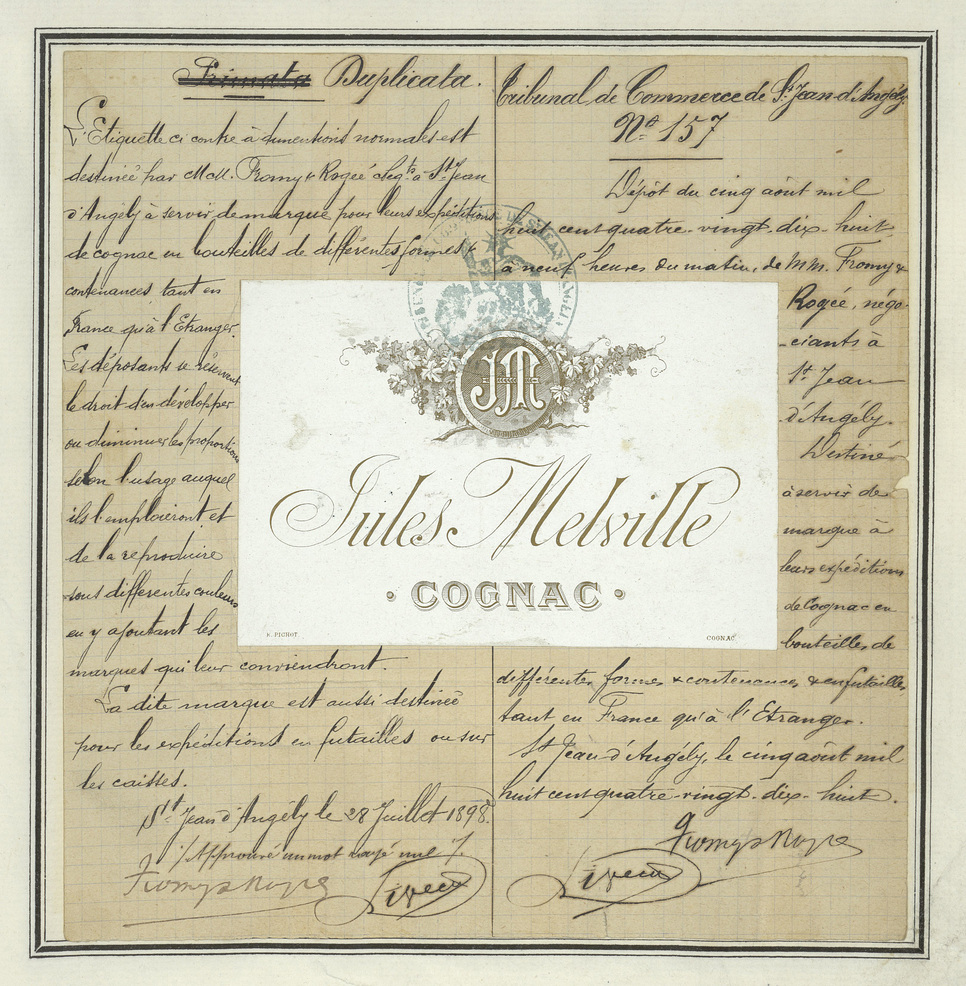 Primata Duplicata.
L'Etiquette ci contre à dimentions normales est
destinée par MM. Fromy & Rogée négts à St Jean
d'Angély à servir de marque pour leurs expéditions
de cognac en bouteilles de différentes formes &
contenances, tant en
France qu'à l'Etranger.
Les déposants se réservent
le droit d'en développer
ou diminuer les proportions
selon l'usage auquel
ils l'emploiront, et
de la reproduire
sous differentes couleurs
en y ajoutant les
marques qui leur conviendront.
La dite marque est aussi destinée
pour les expéditions en futailles ou sur
les caisses.
St Jean d'Angély le 28 Juillet 1898.
Approuvé un mot rayé nul
Fromy & Rogée
Tribunal de Commerce de St Jean d'Angély
No 157
Dépôt du cinq août mil
huit cent quatre-vingt-dix-huit
à neuf heures du matin, de MM. Fromy &
Rogée, négo
-ciants à
St Jean
d'Angély.
Destiné
à servir de
marque à
leurs expéditions
de Cognac en
bouteilles de
différentes formes & contenances & en futailles,
tant en France qu'à l'Etranger.
St Jean d'Angély, le cinq août mil
huit cent quatre-vingt-dix-huit.
Fromy & Rogée
JM
Jules Melville
• COGNAC •
K. PICHOT
COGNAC